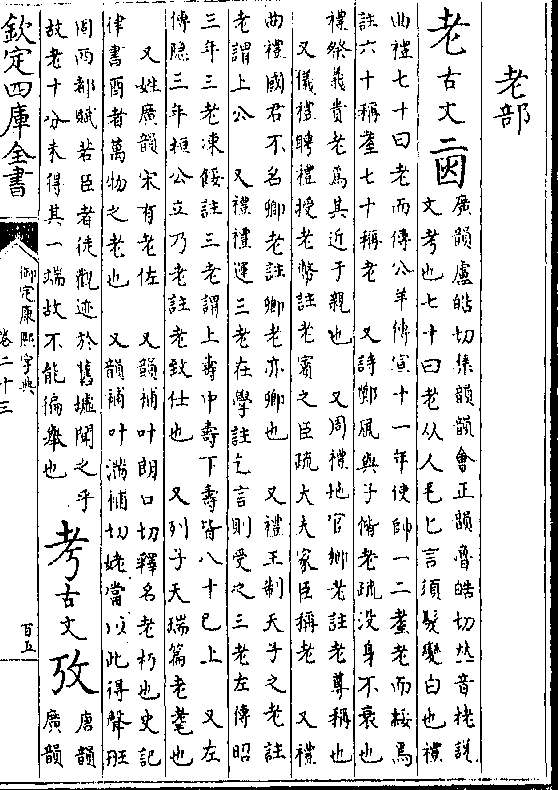 老部
老 古文
廣韻盧皓切集韻韻會正韻魯皓切𠀤音栳說
文考也七十曰老从人毛匕言須髮變白也禮
曲禮七十曰老而傳公羊傳宣十一年使帥一二耋老而綏焉
註六十稱耋七十稱老 又詩鄭風與子偕老疏没身不衰也
禮祭義貴老爲其近于親也 又周禮地官鄉老註老尊稱也
又儀禮聘禮授老幣註老賓之臣疏大夫家臣稱老 又禮
曲禮國君不名卿老註卿老亦卿也 又禮王制天子之老註
老謂上公 又禮禮運三老在學註乞言則受之三老左傳昭
三年三老凍餒註三老謂上壽中壽下壽皆八十已上 又左
傳隐三年桓公立乃老註老致仕也 又列子天瑞篇老耄也
又姓廣韻宋有老佐 又韻補叶朗口切釋名老朽也史記
律書酉者萬物之老也 又韻補叶滿補切姥當以此得聲班
固西都賦若臣者徒觀迹於舊墟聞之乎
故老十分未得其一端故不能徧舉也
考 古文 攷
唐韻
廣韻
欽定四庫全書
御定康熙字典
卷二十三
百五